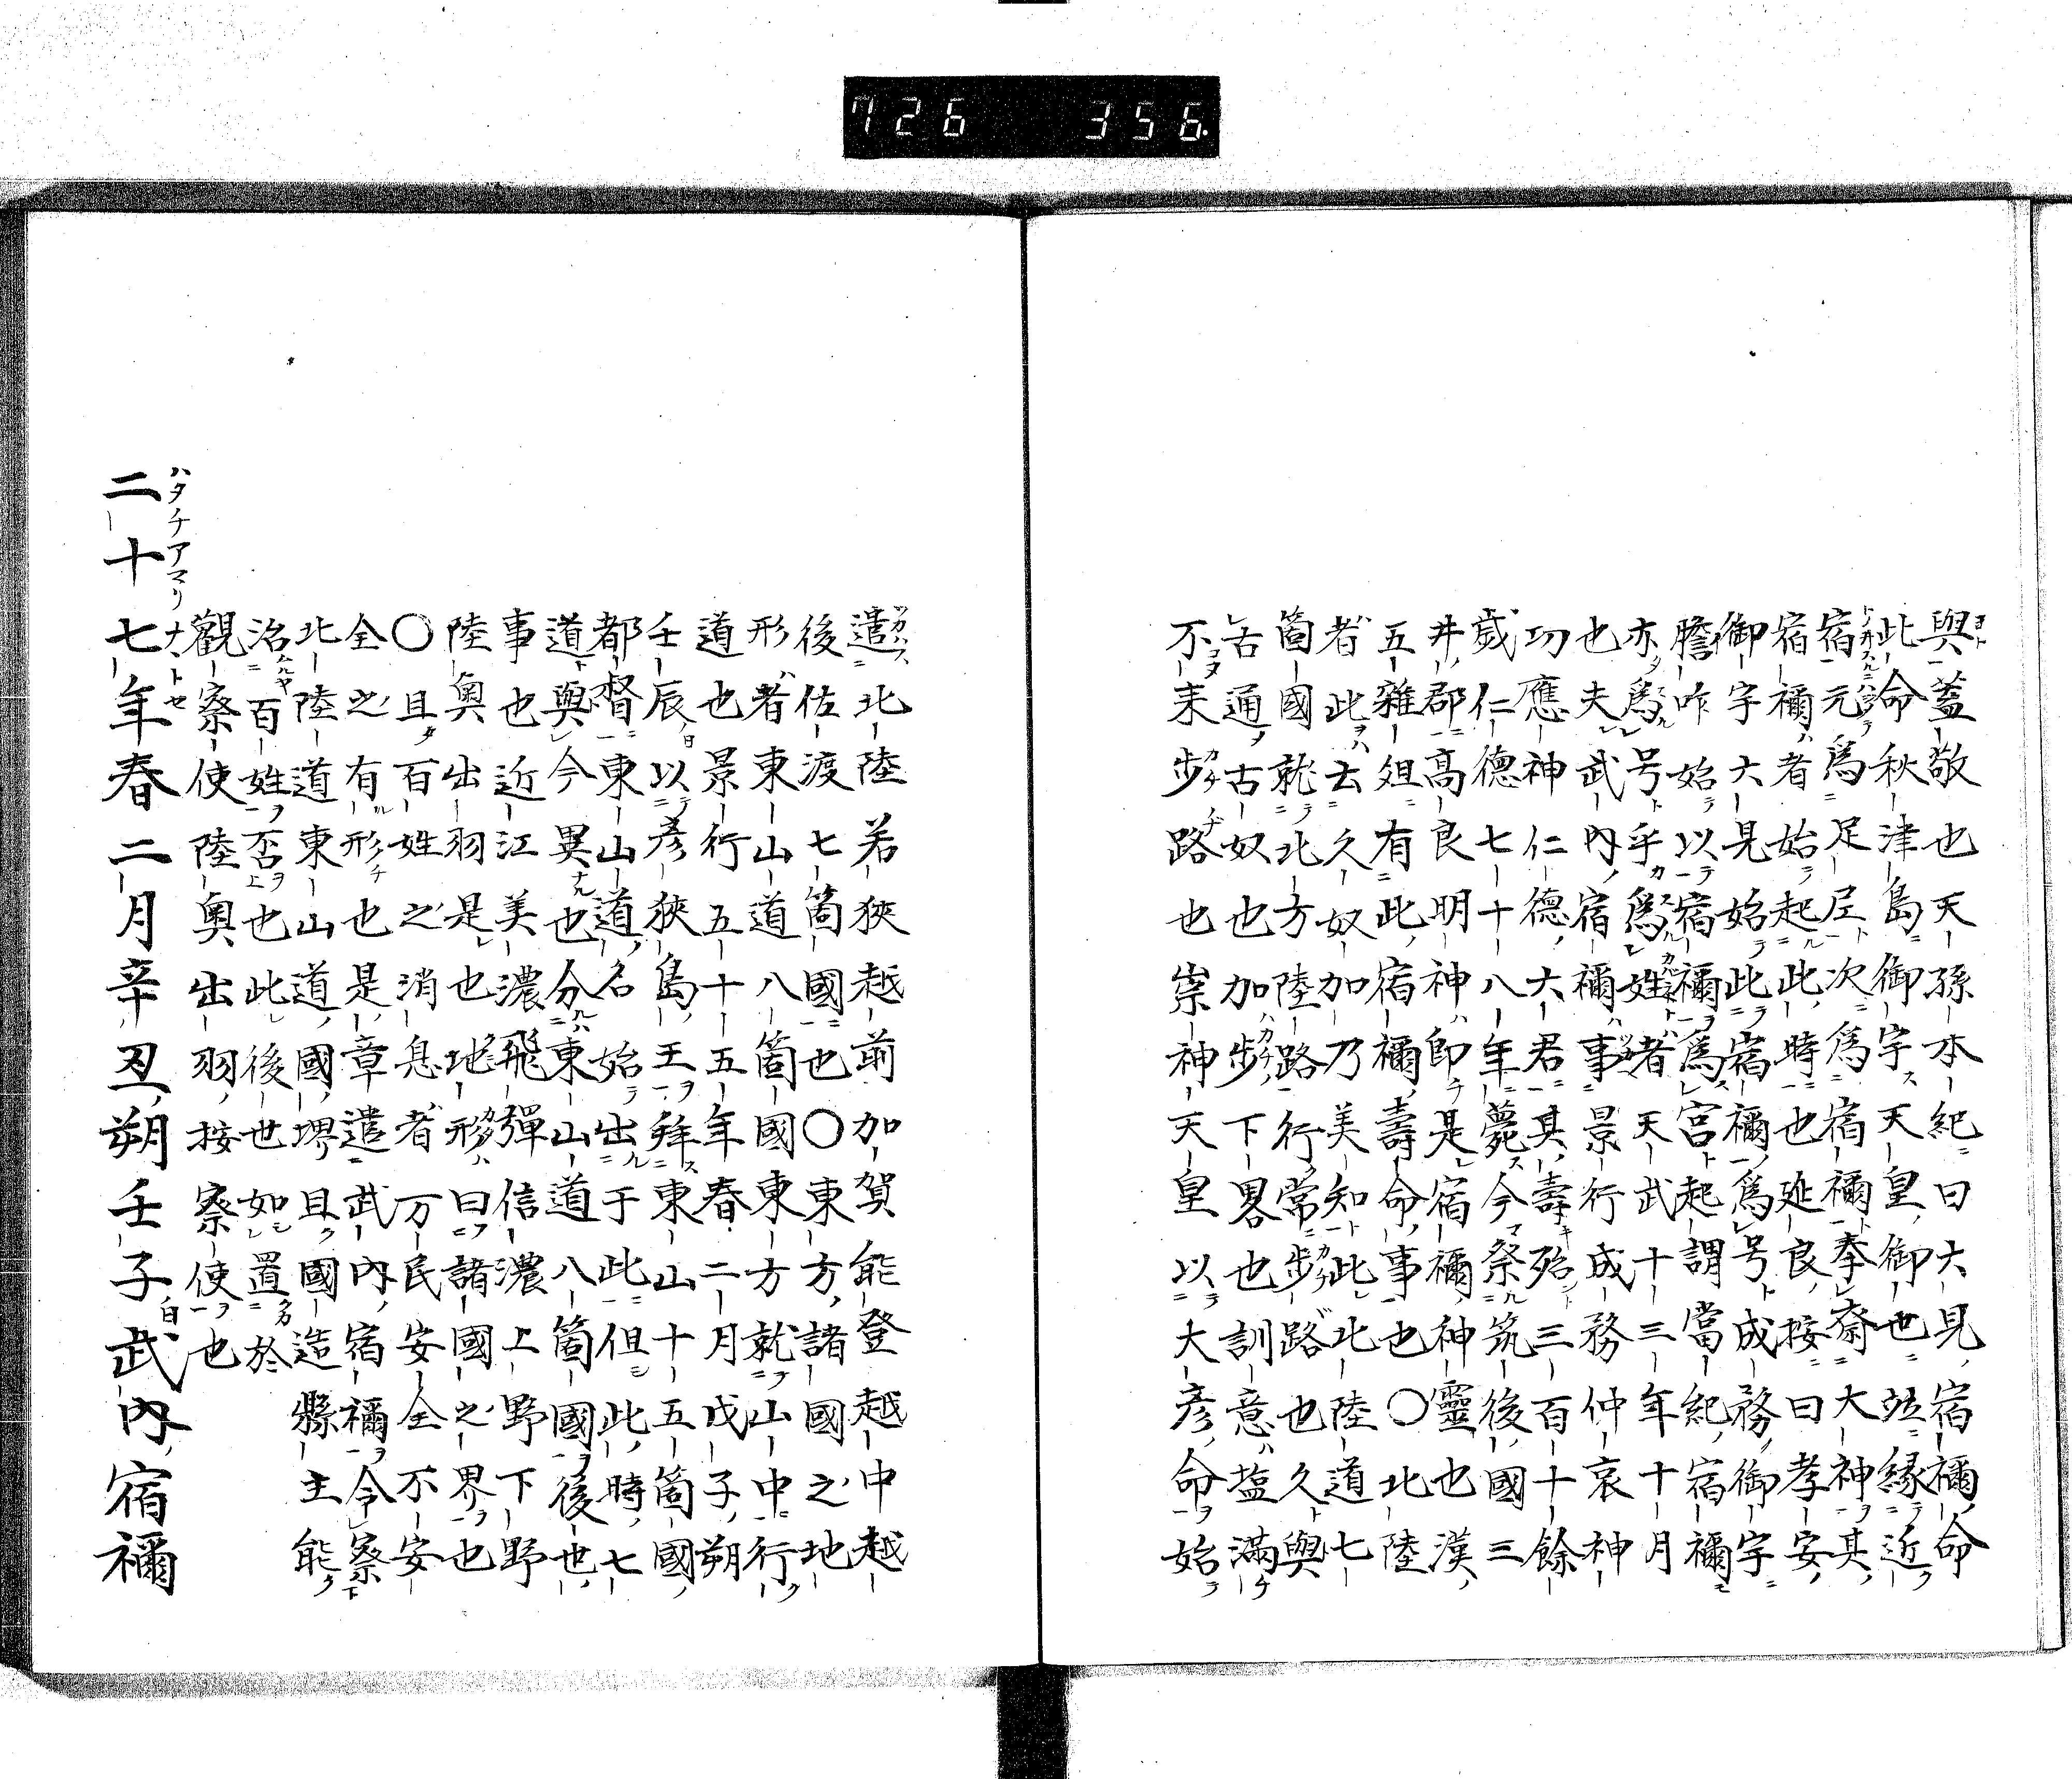 726 356.
與蓋敬也天孫本紀曰大見宿禰命
此命秋津島御宇天皇御世並縁近
宿元爲足尼次爲宿禰奉齋大神其
宿禰者始起此時也延良按曰孝安
御宇大見始此宿禰爲号成務御宇
膽咋始以宿禰爲宮起謂當紀宿禰
亦爲号乎爲姓者天武十三年十月
也夫武内宿禰事景行成務仲哀神
功應神仁德大君其壽殆三百十餘
歲仁德七十八年薨今祭筑後國三
井郡高良明神即是宿禰神靈也漢
五雜俎有此宿禰壽命事也〇北陸
者此云久奴加乃美知此北陸道七
箇國就北方陸路行常步路也久與
古通古奴也加步下畧也訓意塩滿
不來步路也崇神天皇以大彦命始
遣北陸若狹越前加賀能登越中越
後佐渡七箇國也〇東方諸國之地
形者東山道八箇國東方就山中行
道也景行五十五年春二月戊子朔
壬辰以彦狹島王拜東山十五箇國
都督東山道名始出于此但此時七
道與今異也分東山道八箇國後世
事也近江美濃飛彈信濃上野下野
陸奧出羽是也地形曰諸國之界也
〇且百姓之消息者万民安全不安
全之有形也是章遣武内宿禰令察
北陸道東山道國堺且國造縣主能
治百姓否也此後世如置於
觀察使陸奧出羽按察使也
二十七年春二月辛丑朔壬子武内宿禰
ハタチアマリナトセ